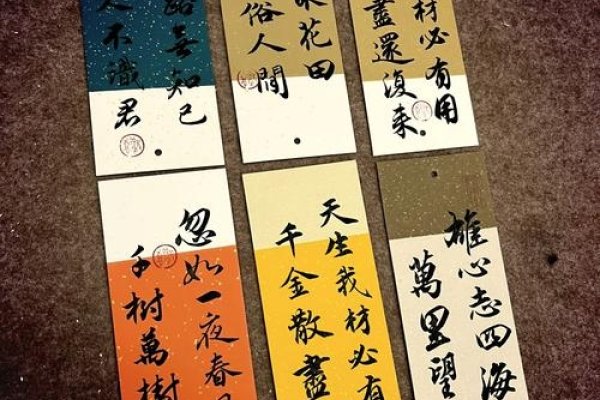 路無知己
人不識君
花田
俗人閒
材必有用
盡還復来
忽如一夜春
千樹萬樹
天生我材必有
千金散盡
雄心志四海
萬里望